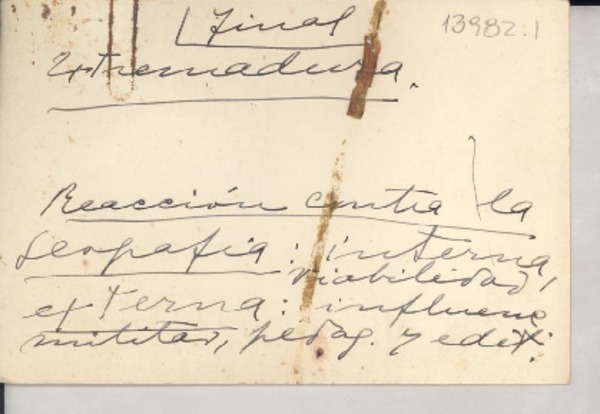 13982:1
Final
Extremadura.
Reacción contra la
geografia: interna,
viabilidad,
externa: influenc
militar, pedag. y edit.